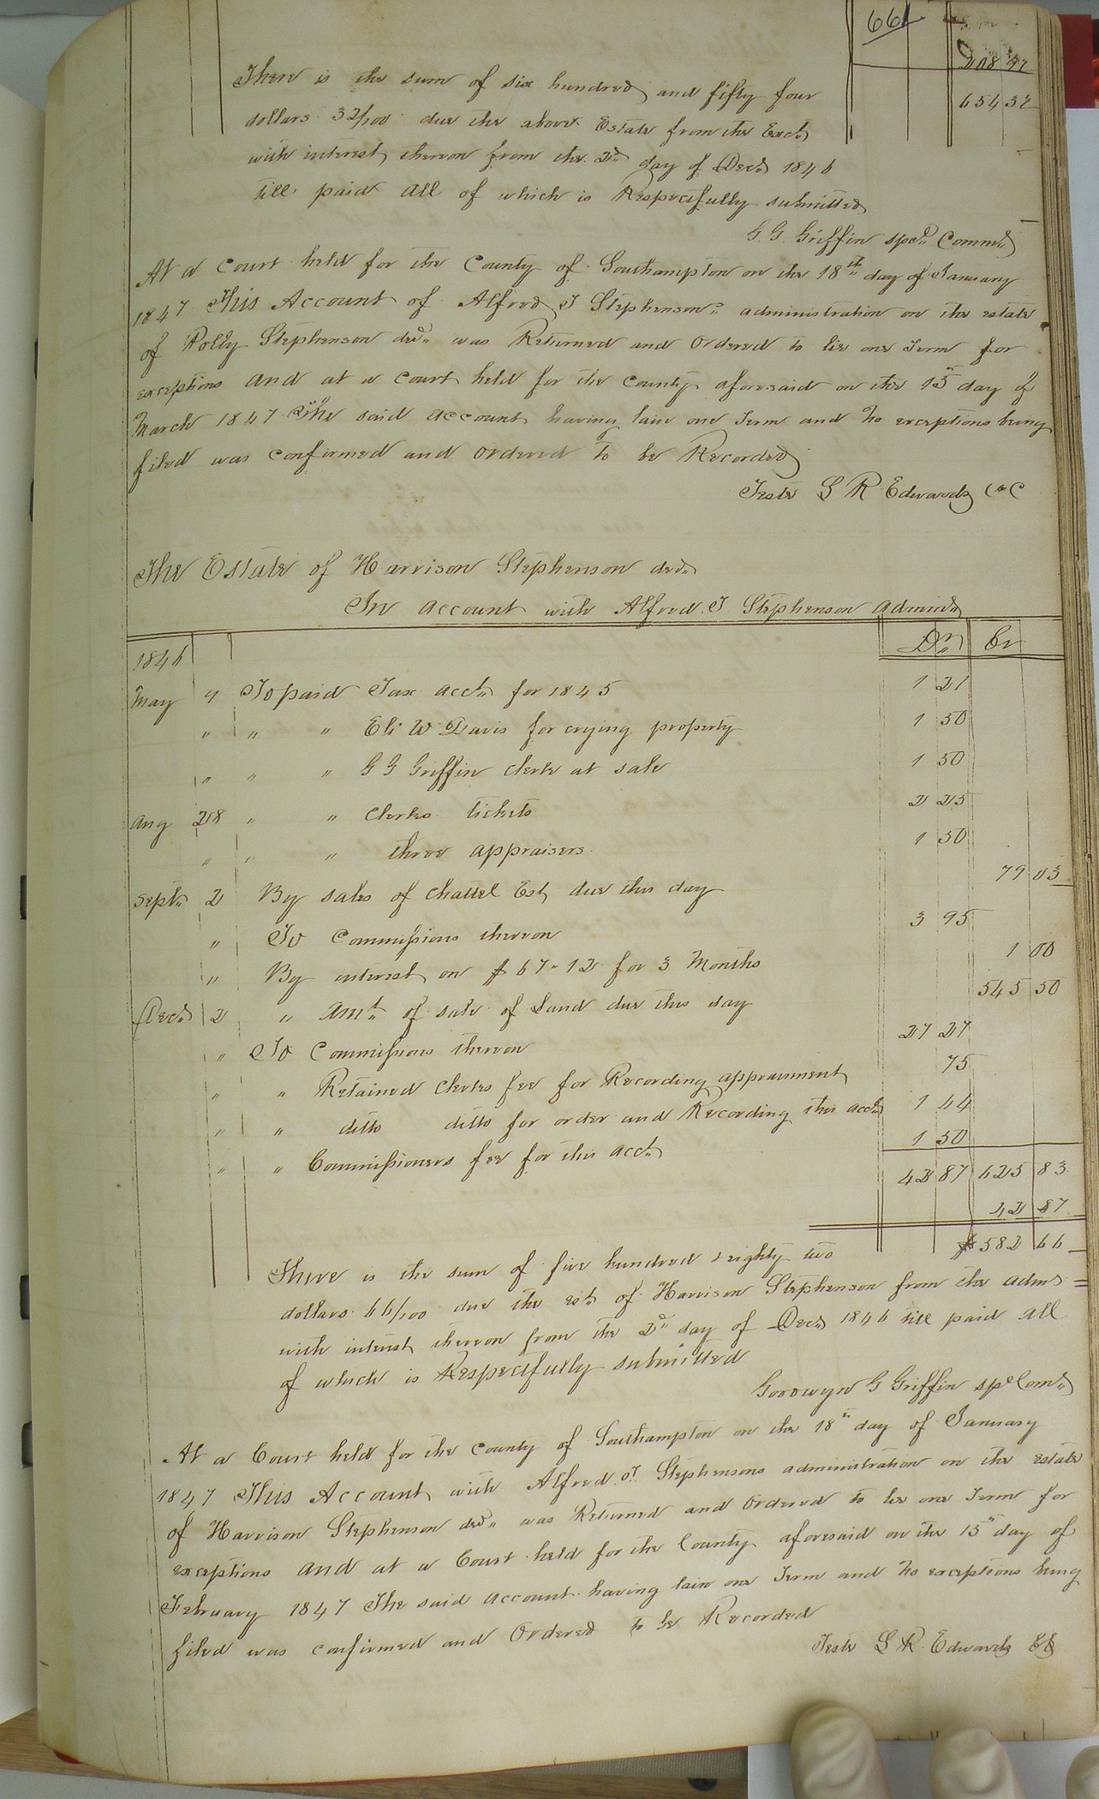 661
208 47
654 32
There is the sum of six hundred and fifty four
dollars 32/100 due the above Estate from the Exct
with interest thereon from the 2d day of Dect 1846
till paid All of which is Respectfully submitted
G. G. Griffin specl Commr
At a Court held for the County of Southampton on the 18th day of January
1847 This Account of Alfred T Stephensons administration on the estate
of Polly Stephenson decd was Returned and Ordered to lie one Term for
exceptions And at a Court held for the County aforesaid on the 15th day of
March 1847 The said account having lain one Term and No exceptions being
filed was confirmed and Ordered to be Recorded
Teste L R Edwards C C
The Estate of Harrison Stephenson decd
In account with Alfred T Stephenson Adminr
1846 Dr Cr
May 4 To paid Tax acct for 1845 1 21
" " " Eli W Davis for crying property 1 50
" " " G G Griffin clerk at sale 1 50
Aug 28 " " Clerks tickets 2 25
" " " three appraisers 1 50
Septr 2 By sales of chattel Est due this day 79 03
" To Commissions thereon 3 95
" By interest on $ 67-12 for 3 Months 1 00
Decr 2 " Amt of sale of Land due this day 545 50
" To Commissions thereon 27 27
" " Retained Clerks fee for Recording appraisment 75
" " ditto ditto for order and Recording this acct 1 44
" " Commissioners fee for this acct 1 50
42 87 625 83
42 87
$582 66
There is the sum of five hundred & eighty two
dollars 66/100 due the est of Harrison Stephenson from the Adms =
with interest thereon from the 2d day of Decr 1846 till paid All
of which is Respectfully submitted
Goodwyn G Griffin spl Comr
At a Court held for the County of Southampton on the 18th day of January
1847 This Account with Alfred T Stephensons administration on the estate
of Harrison Stephenson decd was Returned and Ordered to lie one Term for
exceptions And at a Court held for the County aforesaid on the 15th day of
February 1847 The said account having lain one Term and No exceptions being
filed was confirmed and Ordered to be Recorded
Teste L R Edwards